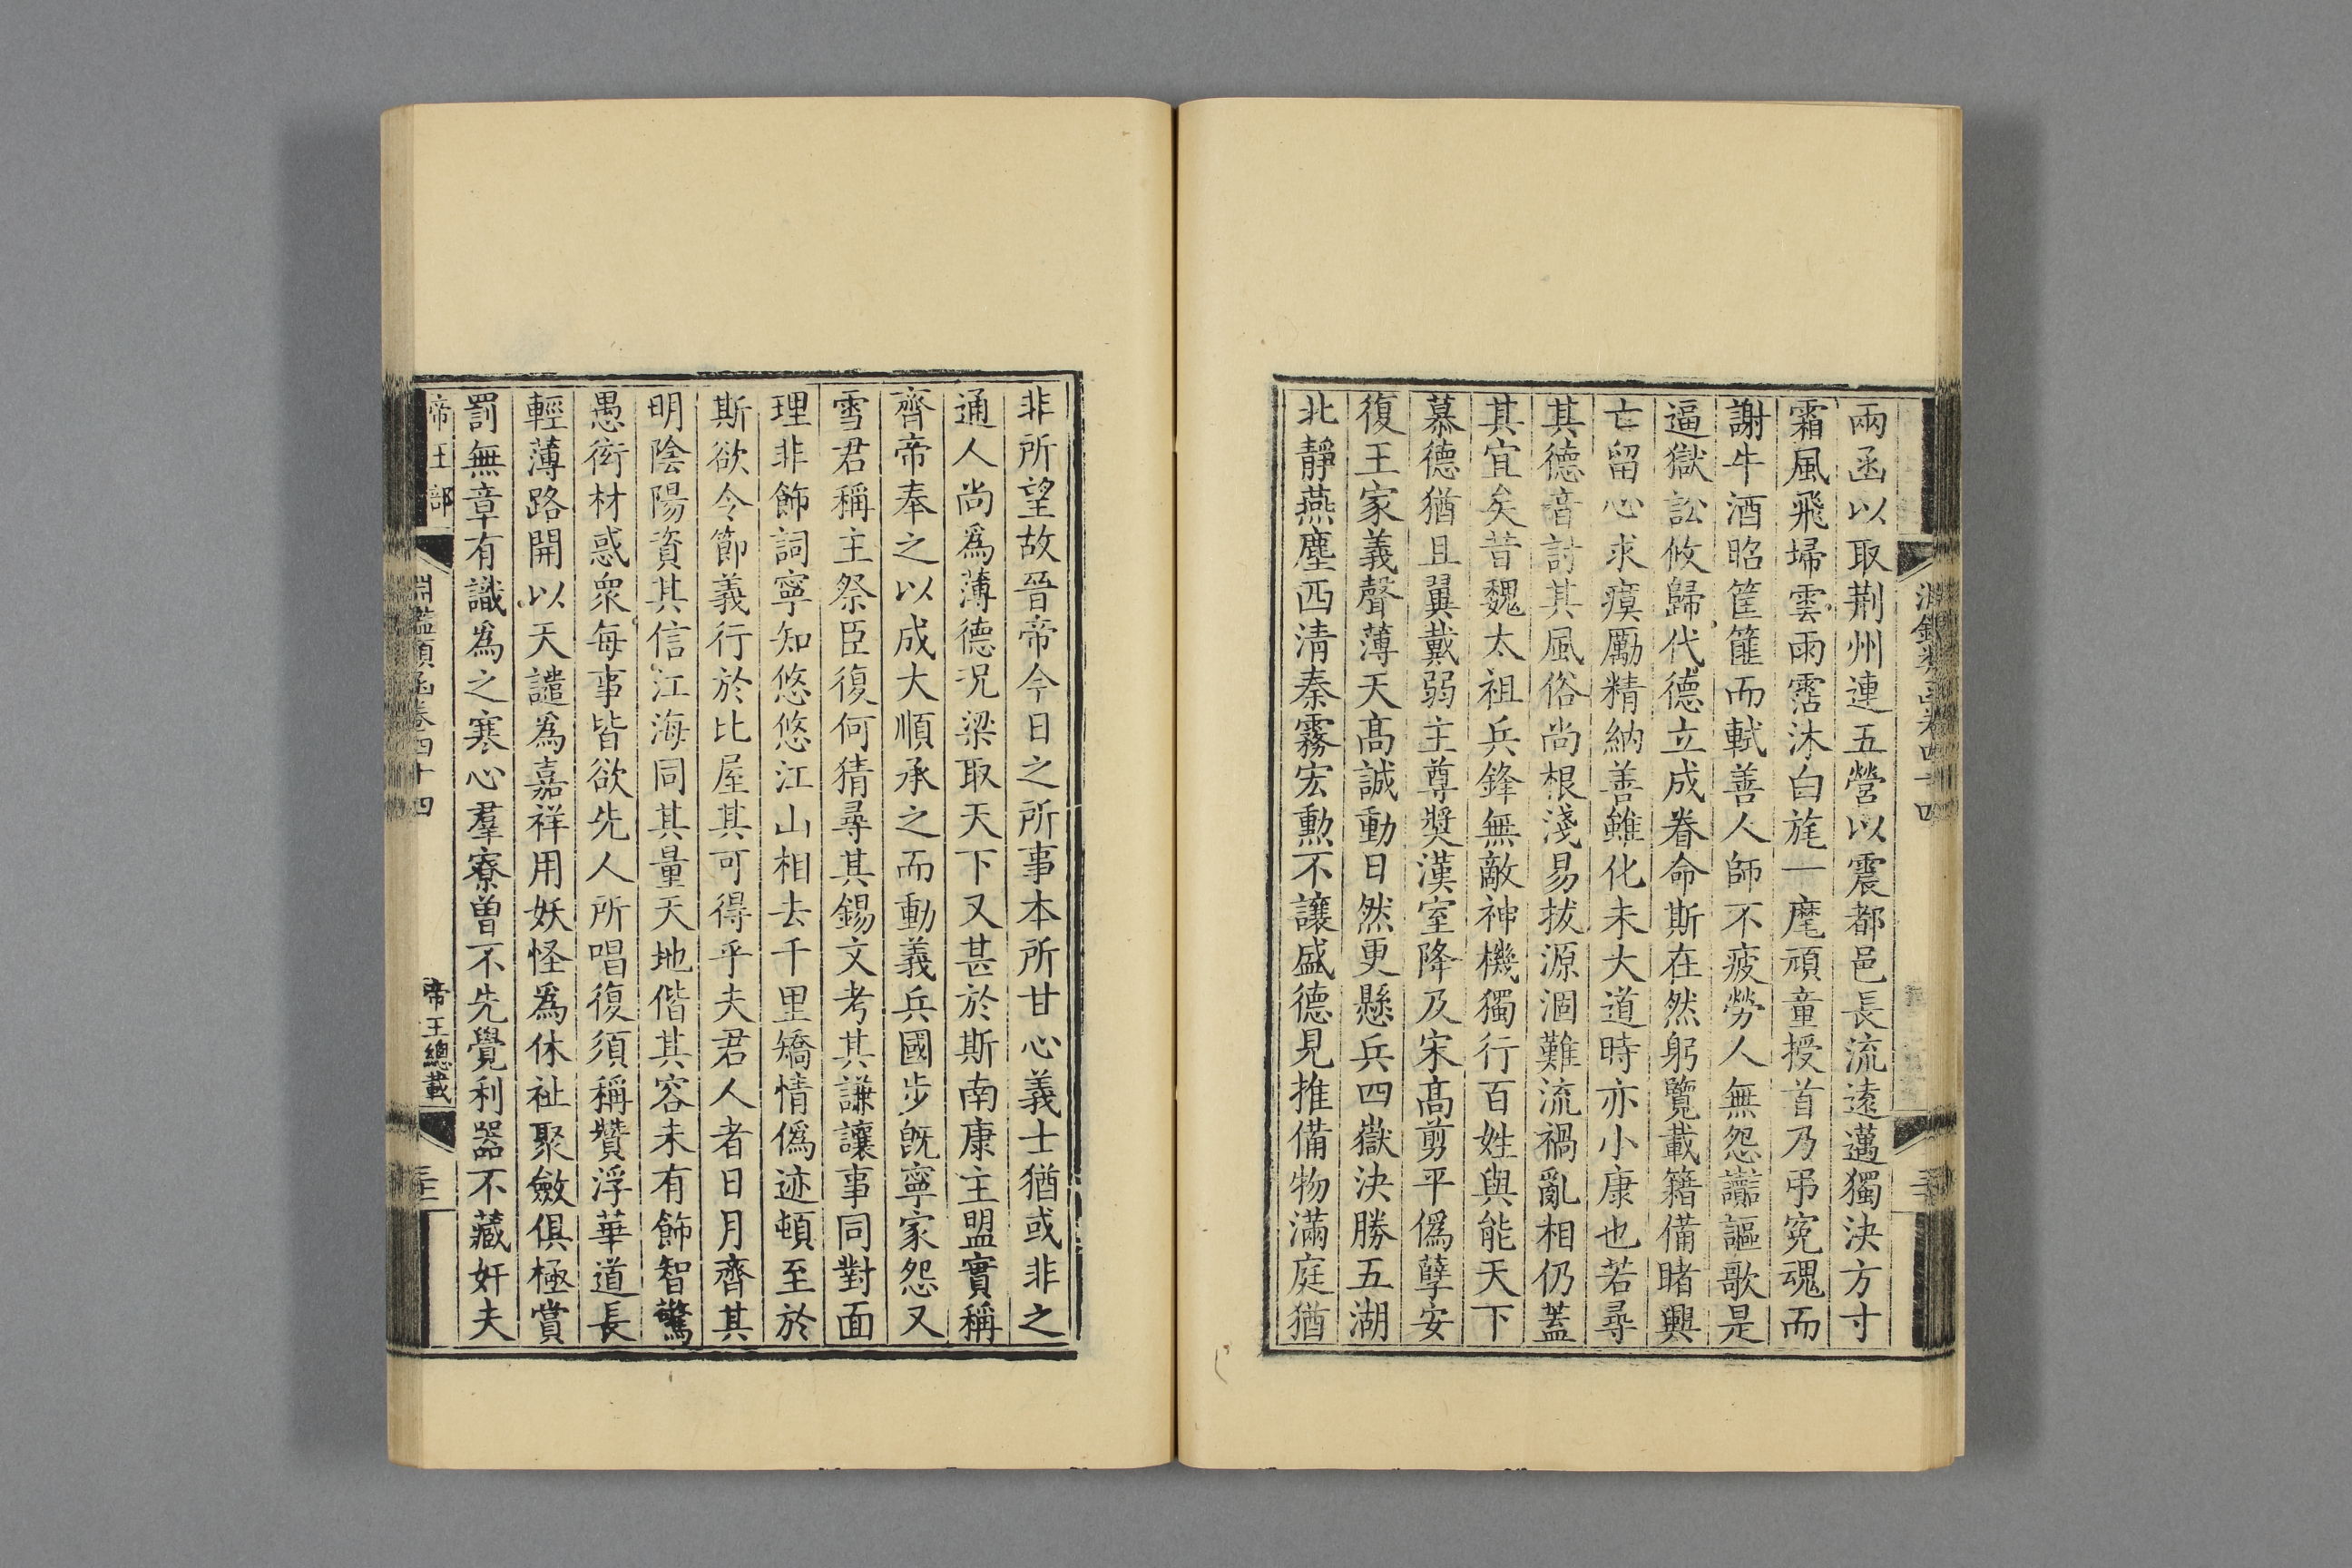 兩函以取荆州連五營以震都邑長流遠邁獨決方寸
霜風飛埽雲雨霑沐白旄一麾頑童授首乃弔寃魂而
謝牛酒昭筐篚而軾善人師不疲勞人無怨讟謳歌是
逼獄訟攸歸代德立成眷命斯在然躬覽載籍備睹興
亡留心求瘼勵精納善雖化未大道時亦小康也若尋
其德音討其風俗尚根淺易拔源涸難流禍亂相仍蓋
其宜矣昔魏太祖兵鋒無敵神機獨行百姓與能天下
慕德猶且翼戴弱主尊奬漢室降及宋高剪平僞孽安
復王家義聲薄天高誠動日然更懸兵四嶽決勝五湖
北靜燕塵西清秦霧宏勲不讓盛德見推備物滿庭猶
非所望故晉帝今日之所事本所甘心義士猶或非之
通人尚爲薄德况梁取天下又甚於斯南康主盟實稱
齊帝奉之以成大順承之而動義兵國步旣寧家怨又
雪君稱主祭臣復何猜尋其錫文考其謙讓事同對面
理非飾詞寧知悠悠江山相去千里矯情僞迹頓至於
斯欲令節義行於比屋其可得乎夫君人者日月齊其
明陰陽資其信江海同其量天地偕其容未有飾智驚
愚衒材惑衆每事皆欲先人所唱復須稱贊浮華道長
輕薄路開以天譴爲嘉祥用妖怪爲休祉聚斂俱極賞
罰無章有識爲之寒心羣寮曾不先覺利器不藏奸夫
帝王部
淵鑑類函卷四十四
帝王總載